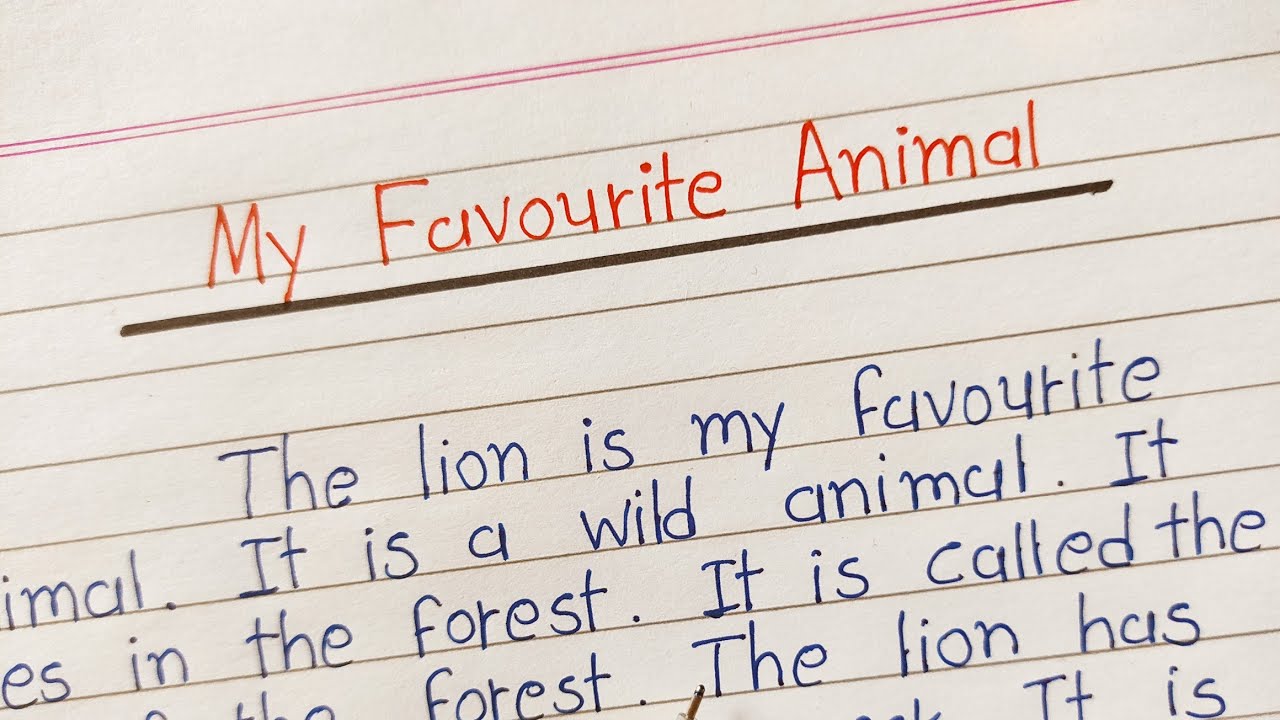 My Favourite Animal
The lion is my favourite
imal. It is a wild animal. It
es in the forest. It is called the
the forest. The lion has
It is